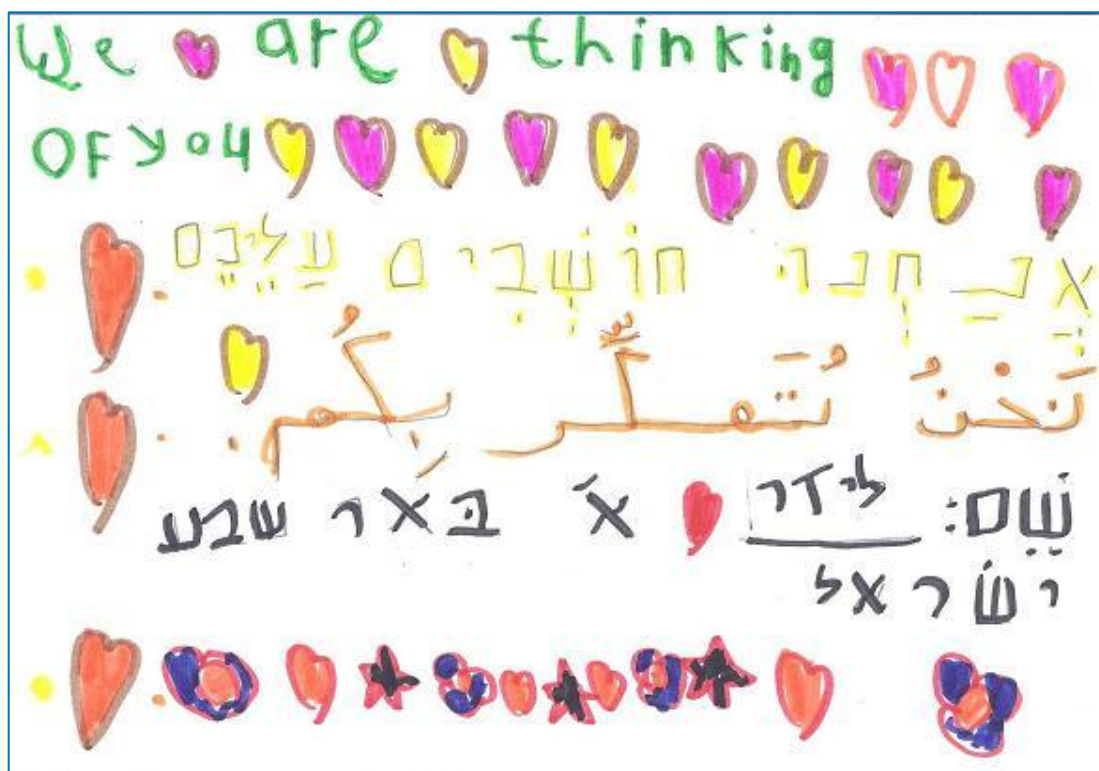 We are thinking
OF you
אֲנַחְנוּ חוֹשְׁבִים עֲלֵיכֶם
نَحْنُ بِكُم.
שֵׁם: לידר א' באר שבע
ישׂראל